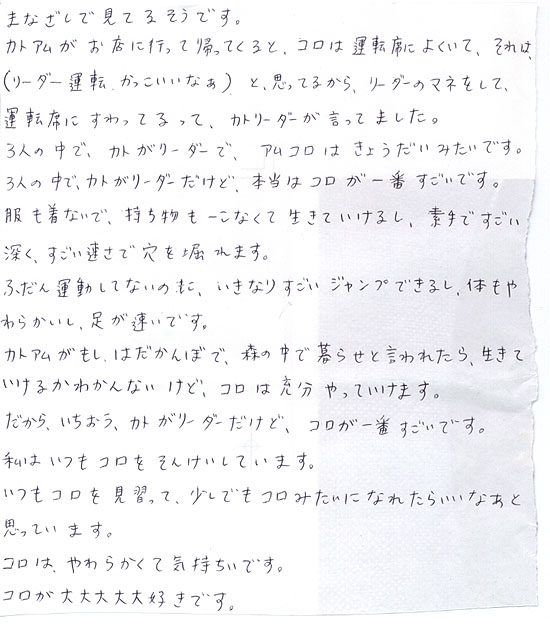 まなざしで見てるそうです。
カトアムがお店に行って帰ってくると、コロは運転席によくいて、それは、
(リーダー運転かっこいいなぁ)と、思ってるから、リーダーのマネをして、
運転席にすわってるって、カトリーダーが言ってました。
3人の中で、カトがリーダーで、アムコロはきょうだいみたいです。
3人の中で、カトがリーダーだけど、本当はコロが一番すごいです。
服も着ないで、持ち物も一こなくて生きていけるし、素手ですごい
深く、すごい速さで穴を掘れます。
ふだん運動してないのに、いきなりすごいジャンプできるし、体もや
わらかいし、足が速いです。
カトアムがもし、はだかんぼで、森の中で暮らせと言われたら、生きて
いけるかわかんないけど、コロは充分やっていけます。
だから、いちおう、カトがリーダーだけど、コロが一番すごいです。
私はいつもコロをそんけいしています。
いつもコロを見習って、少しでもコロみたいになれたらいいなあと
思っています。
コロは、やわらかくて気持ちいです。
コロが大大大大大好きです。